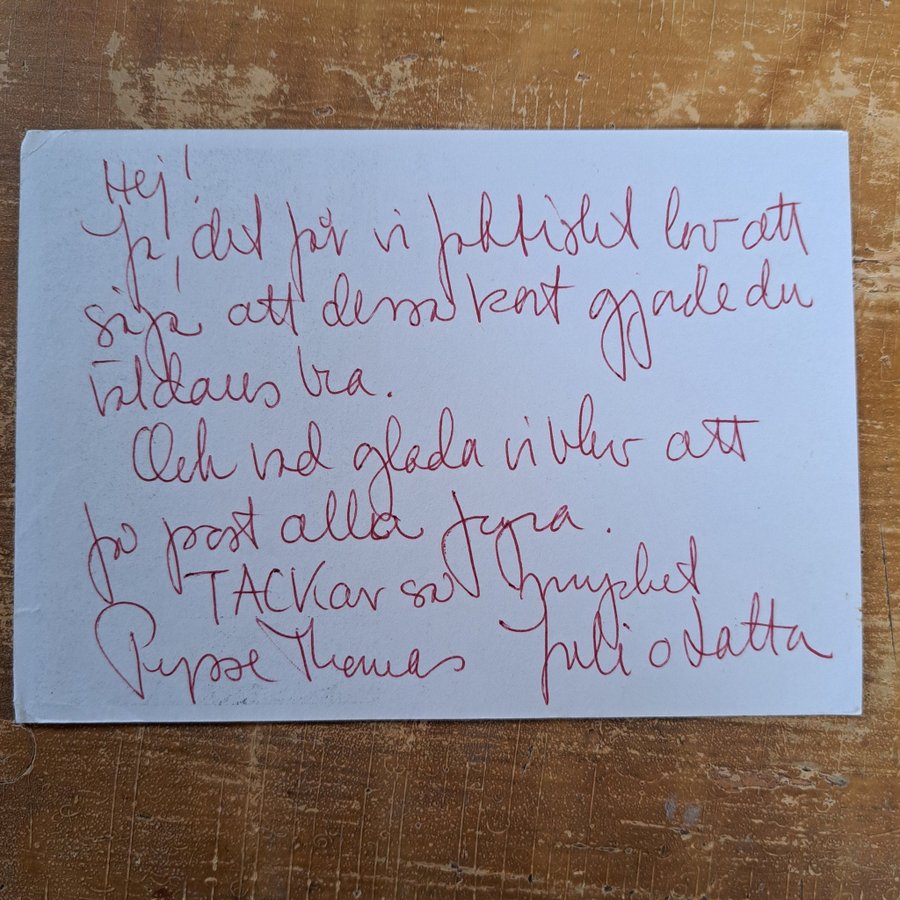 Hej!
Ja, det får vi faktiskt lov att
säja att dessa kort gjorde du
väldans bra.
Och vad glada vi blev att
få post alla fyra.
TACKar så mycket
Pysse Thomas Juli o Latta